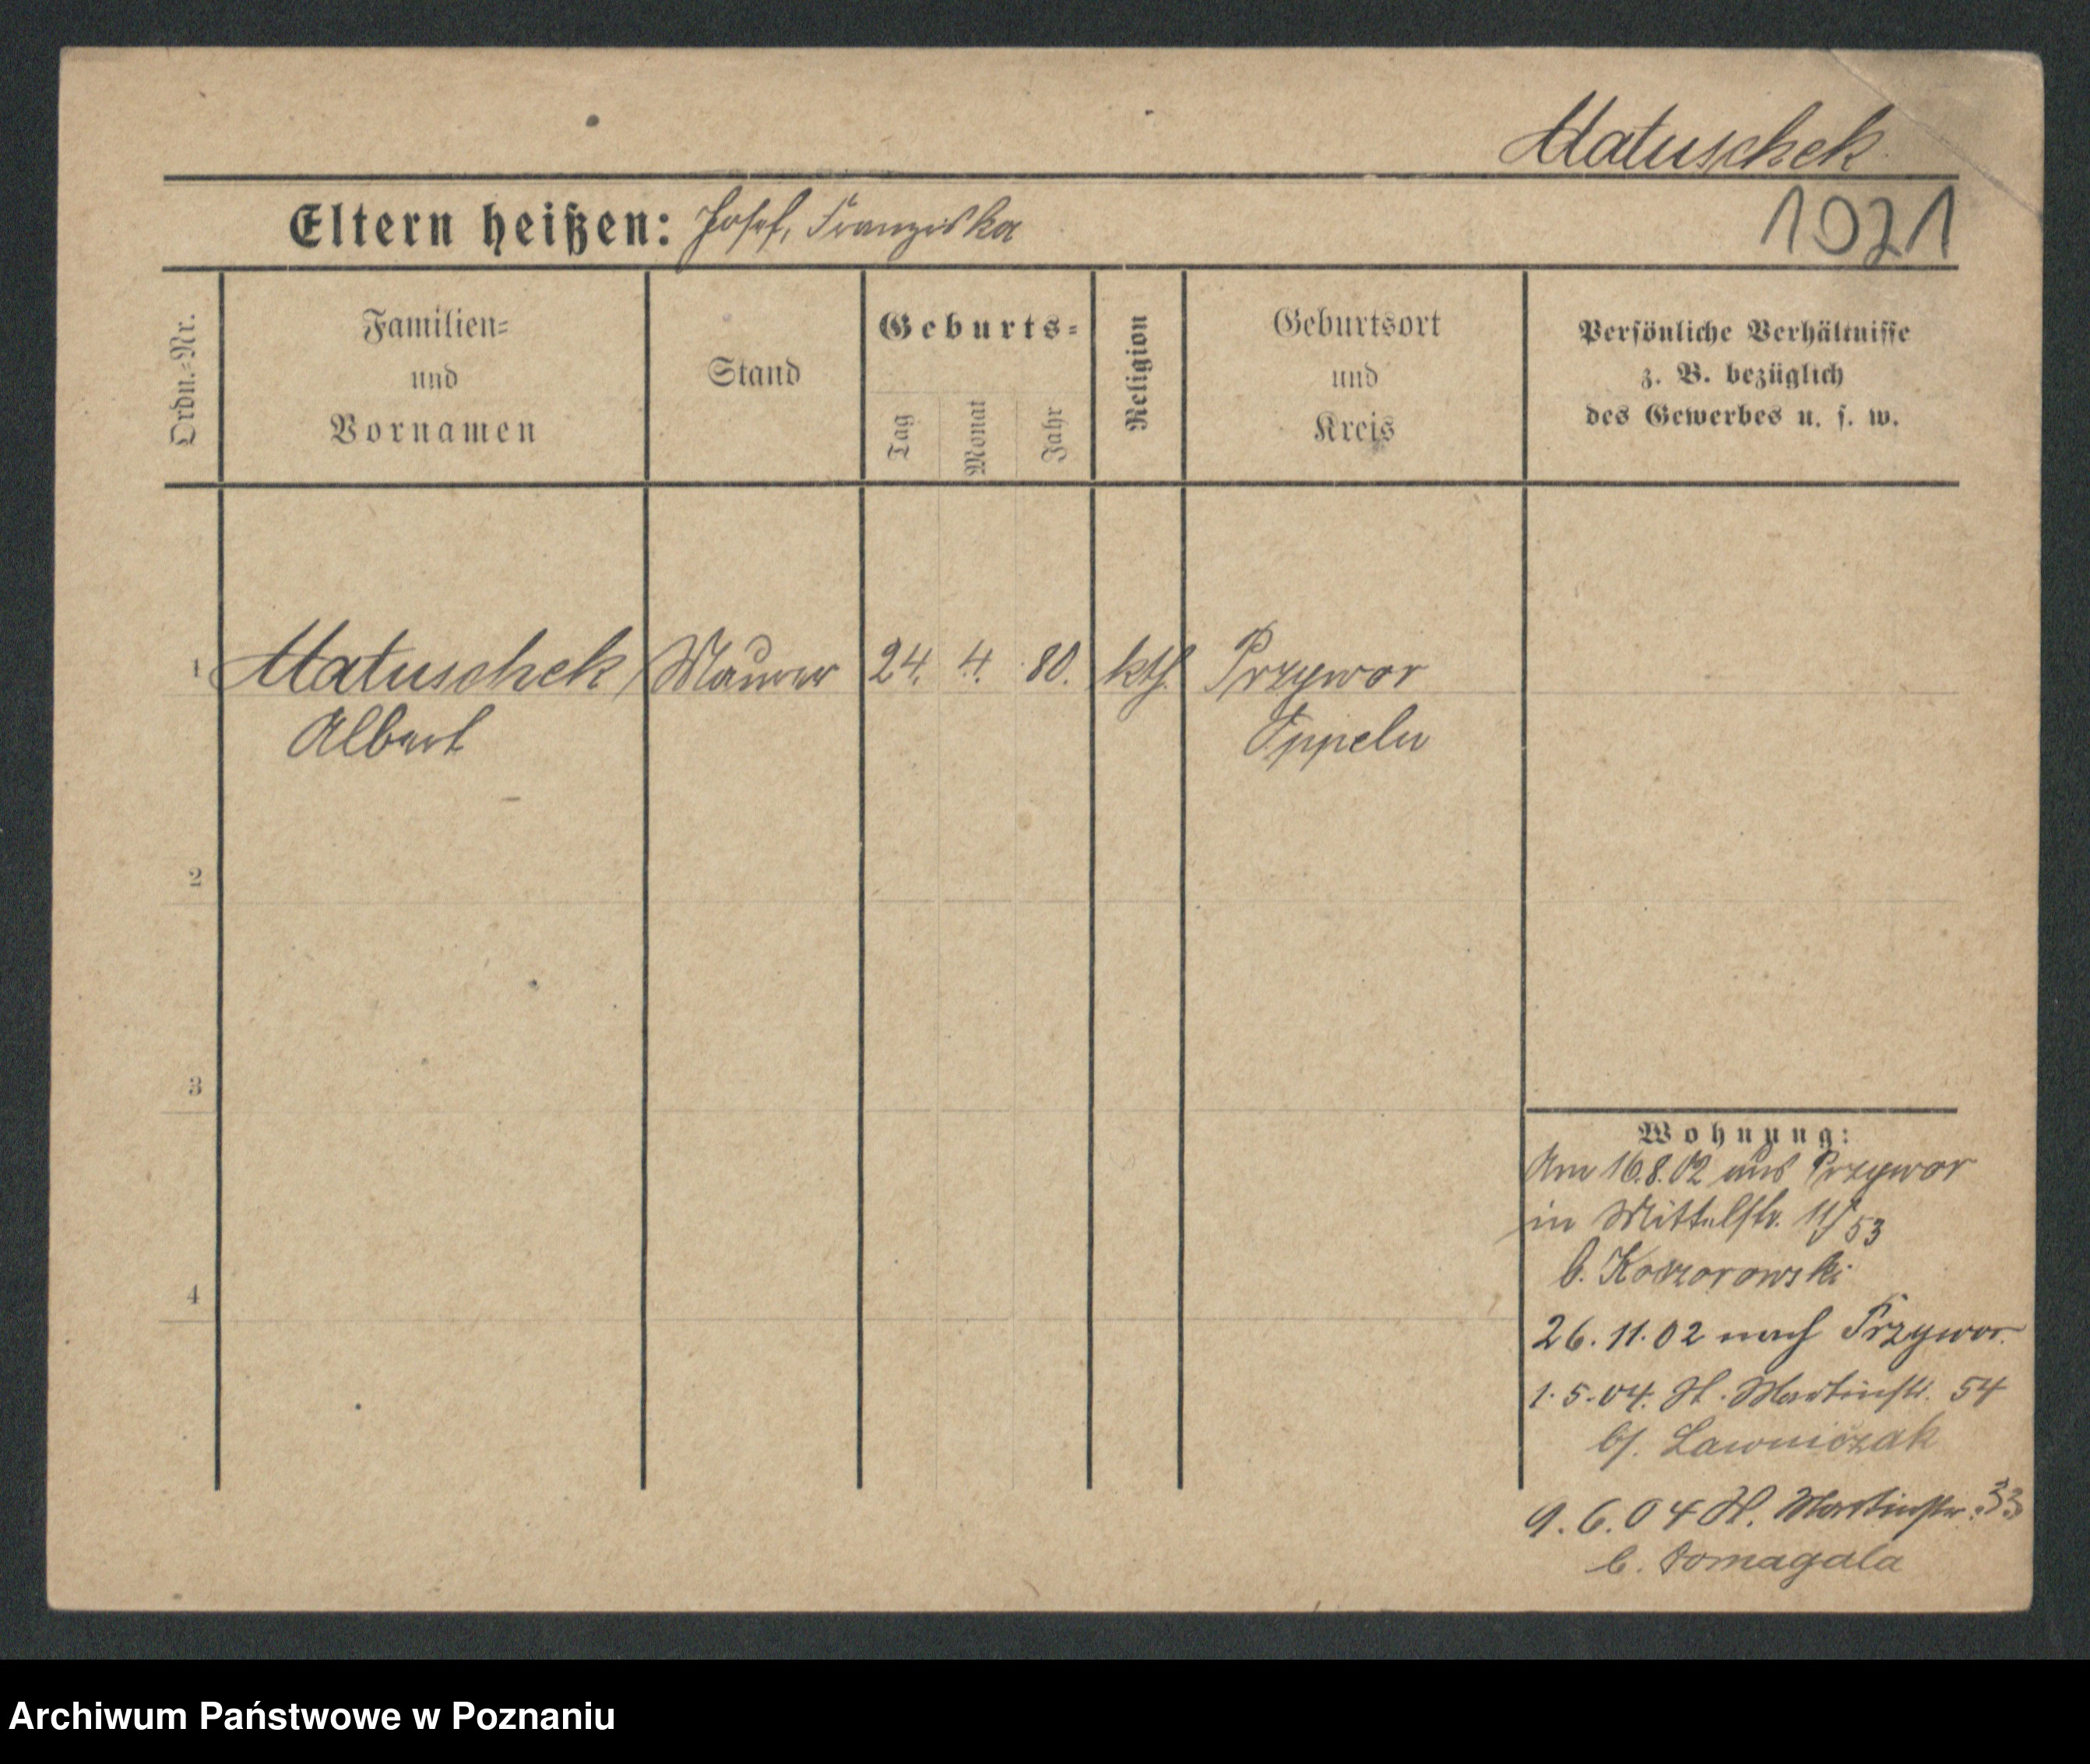 Matuschek
Eltern heißen: Josef, Franziska
1021
Ordn.-Nr.
Familien-
und
Vornamen
Stand
Geburts-
Tag
Monat
Jahr
Religion
Geburtsort
und
Kreis
Persönliche Verhältnisse
z. B. bezüglich
des Gewerbes u. s. w.
1 Matuschek Maurer 24. 4. 80. kth. Przywor
Albert Oppeln
2
3
4
Wohnung:
Am 16.8.02 aus Przywor
in Mittelstr. 11/53
b.
26.11.02 nach Przywor.
1.5.04. St. Martinstr. 54
b/. Lawniczak
9.6.04 St. Martinstr. 33
b. Domagala
Archiwum Państwowe w Poznaniu